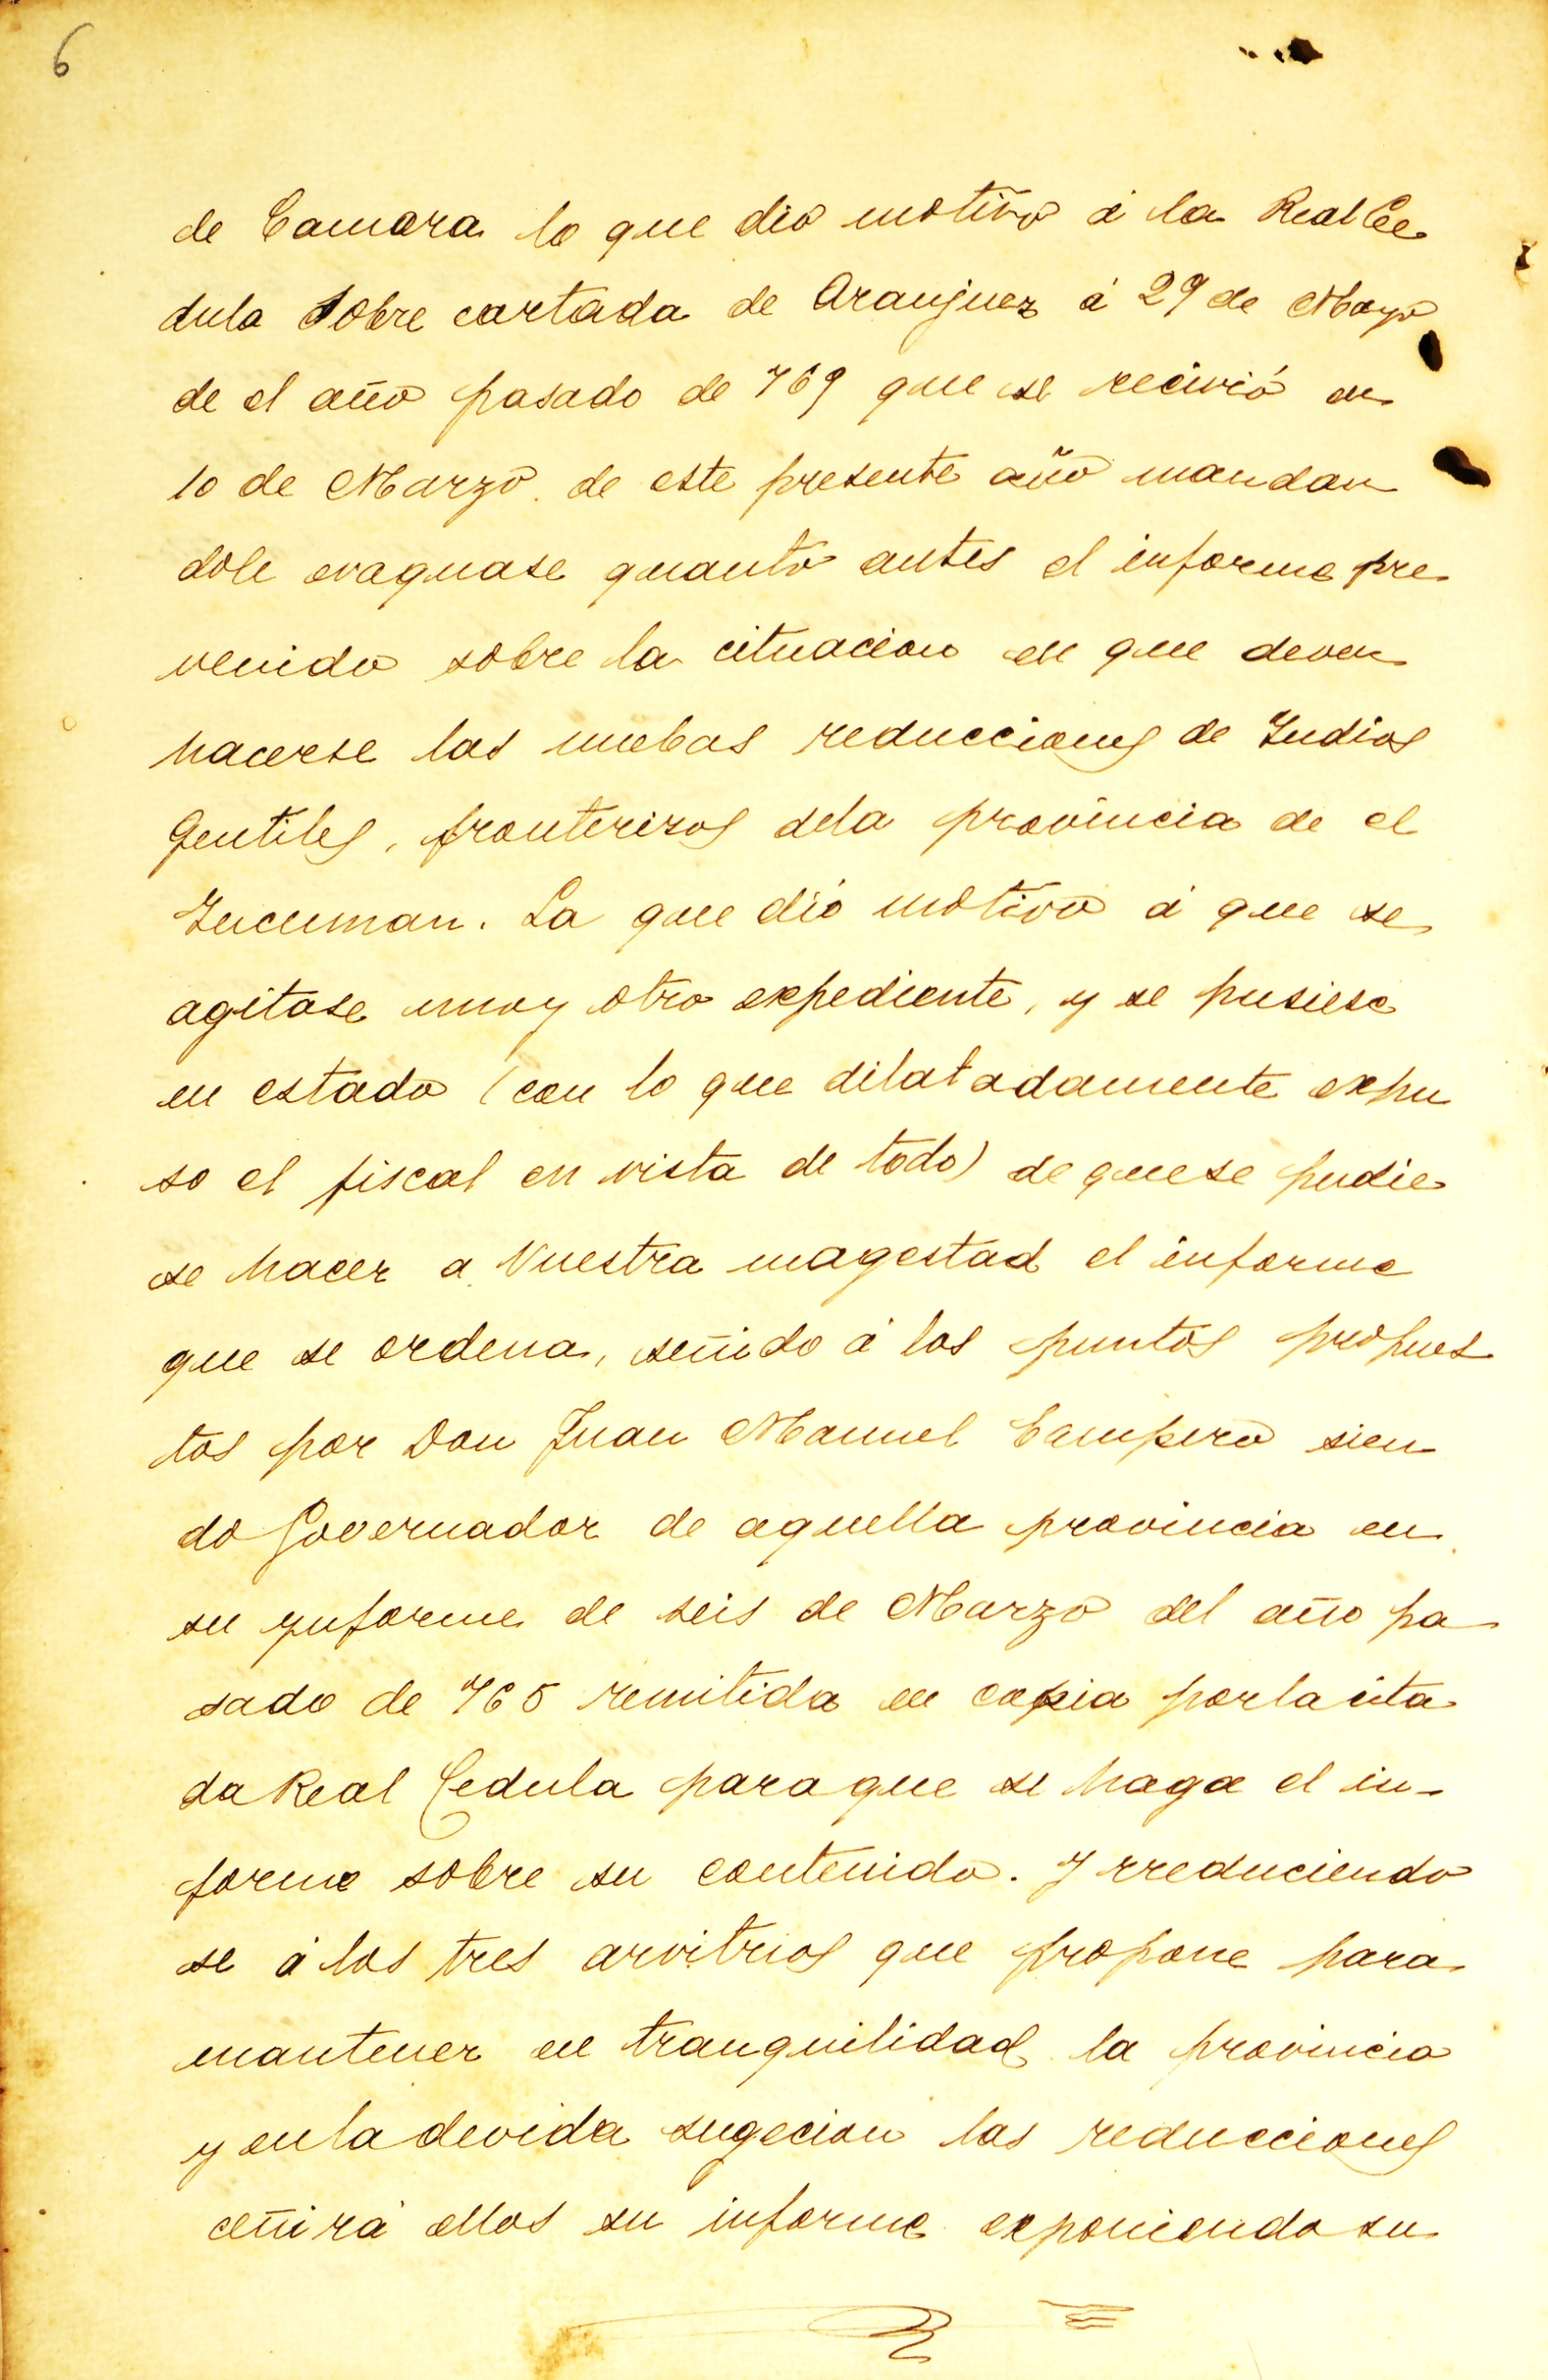 6
de Camara lo que dio motivo á la Real Ce
dula Sobre cartada de Aranjuez á 29 de Mayo
de el año pasado de 769 que se recivió en
10 de Marzo de este presente año mandan
dole evaquase quanto antes el informe pre
venido sobre la cituacion en que deven
hacerse las nuebas reducciones de Indios
Gentiles, fronterizos dela provincia de el
Tucuman. La que dió motivo á que se
agitase uno y otro expediente, y se pusiese
en estado (con lo que dilatadamente expu
so el fiscal en vista de todo) de quese pudie
se hacer a Vuestra magestad el informe
que se ordena, señido á los puntos propues
tos por Don Juan Manuel Campero sien
do Governador de aquella provincia en
su ynforme de seis de Marzo del año pa
sado de 765 remitida en copia porla cita
da Real Cedula para que se haga el in-
forme sobre su contenido. Y rreduciendo
se á los tres arvitrios que propone para
mantener en tranquilidad la provincia
y enla devida sugecion las reducciones
ceñirá ellos su informe exponiendo su